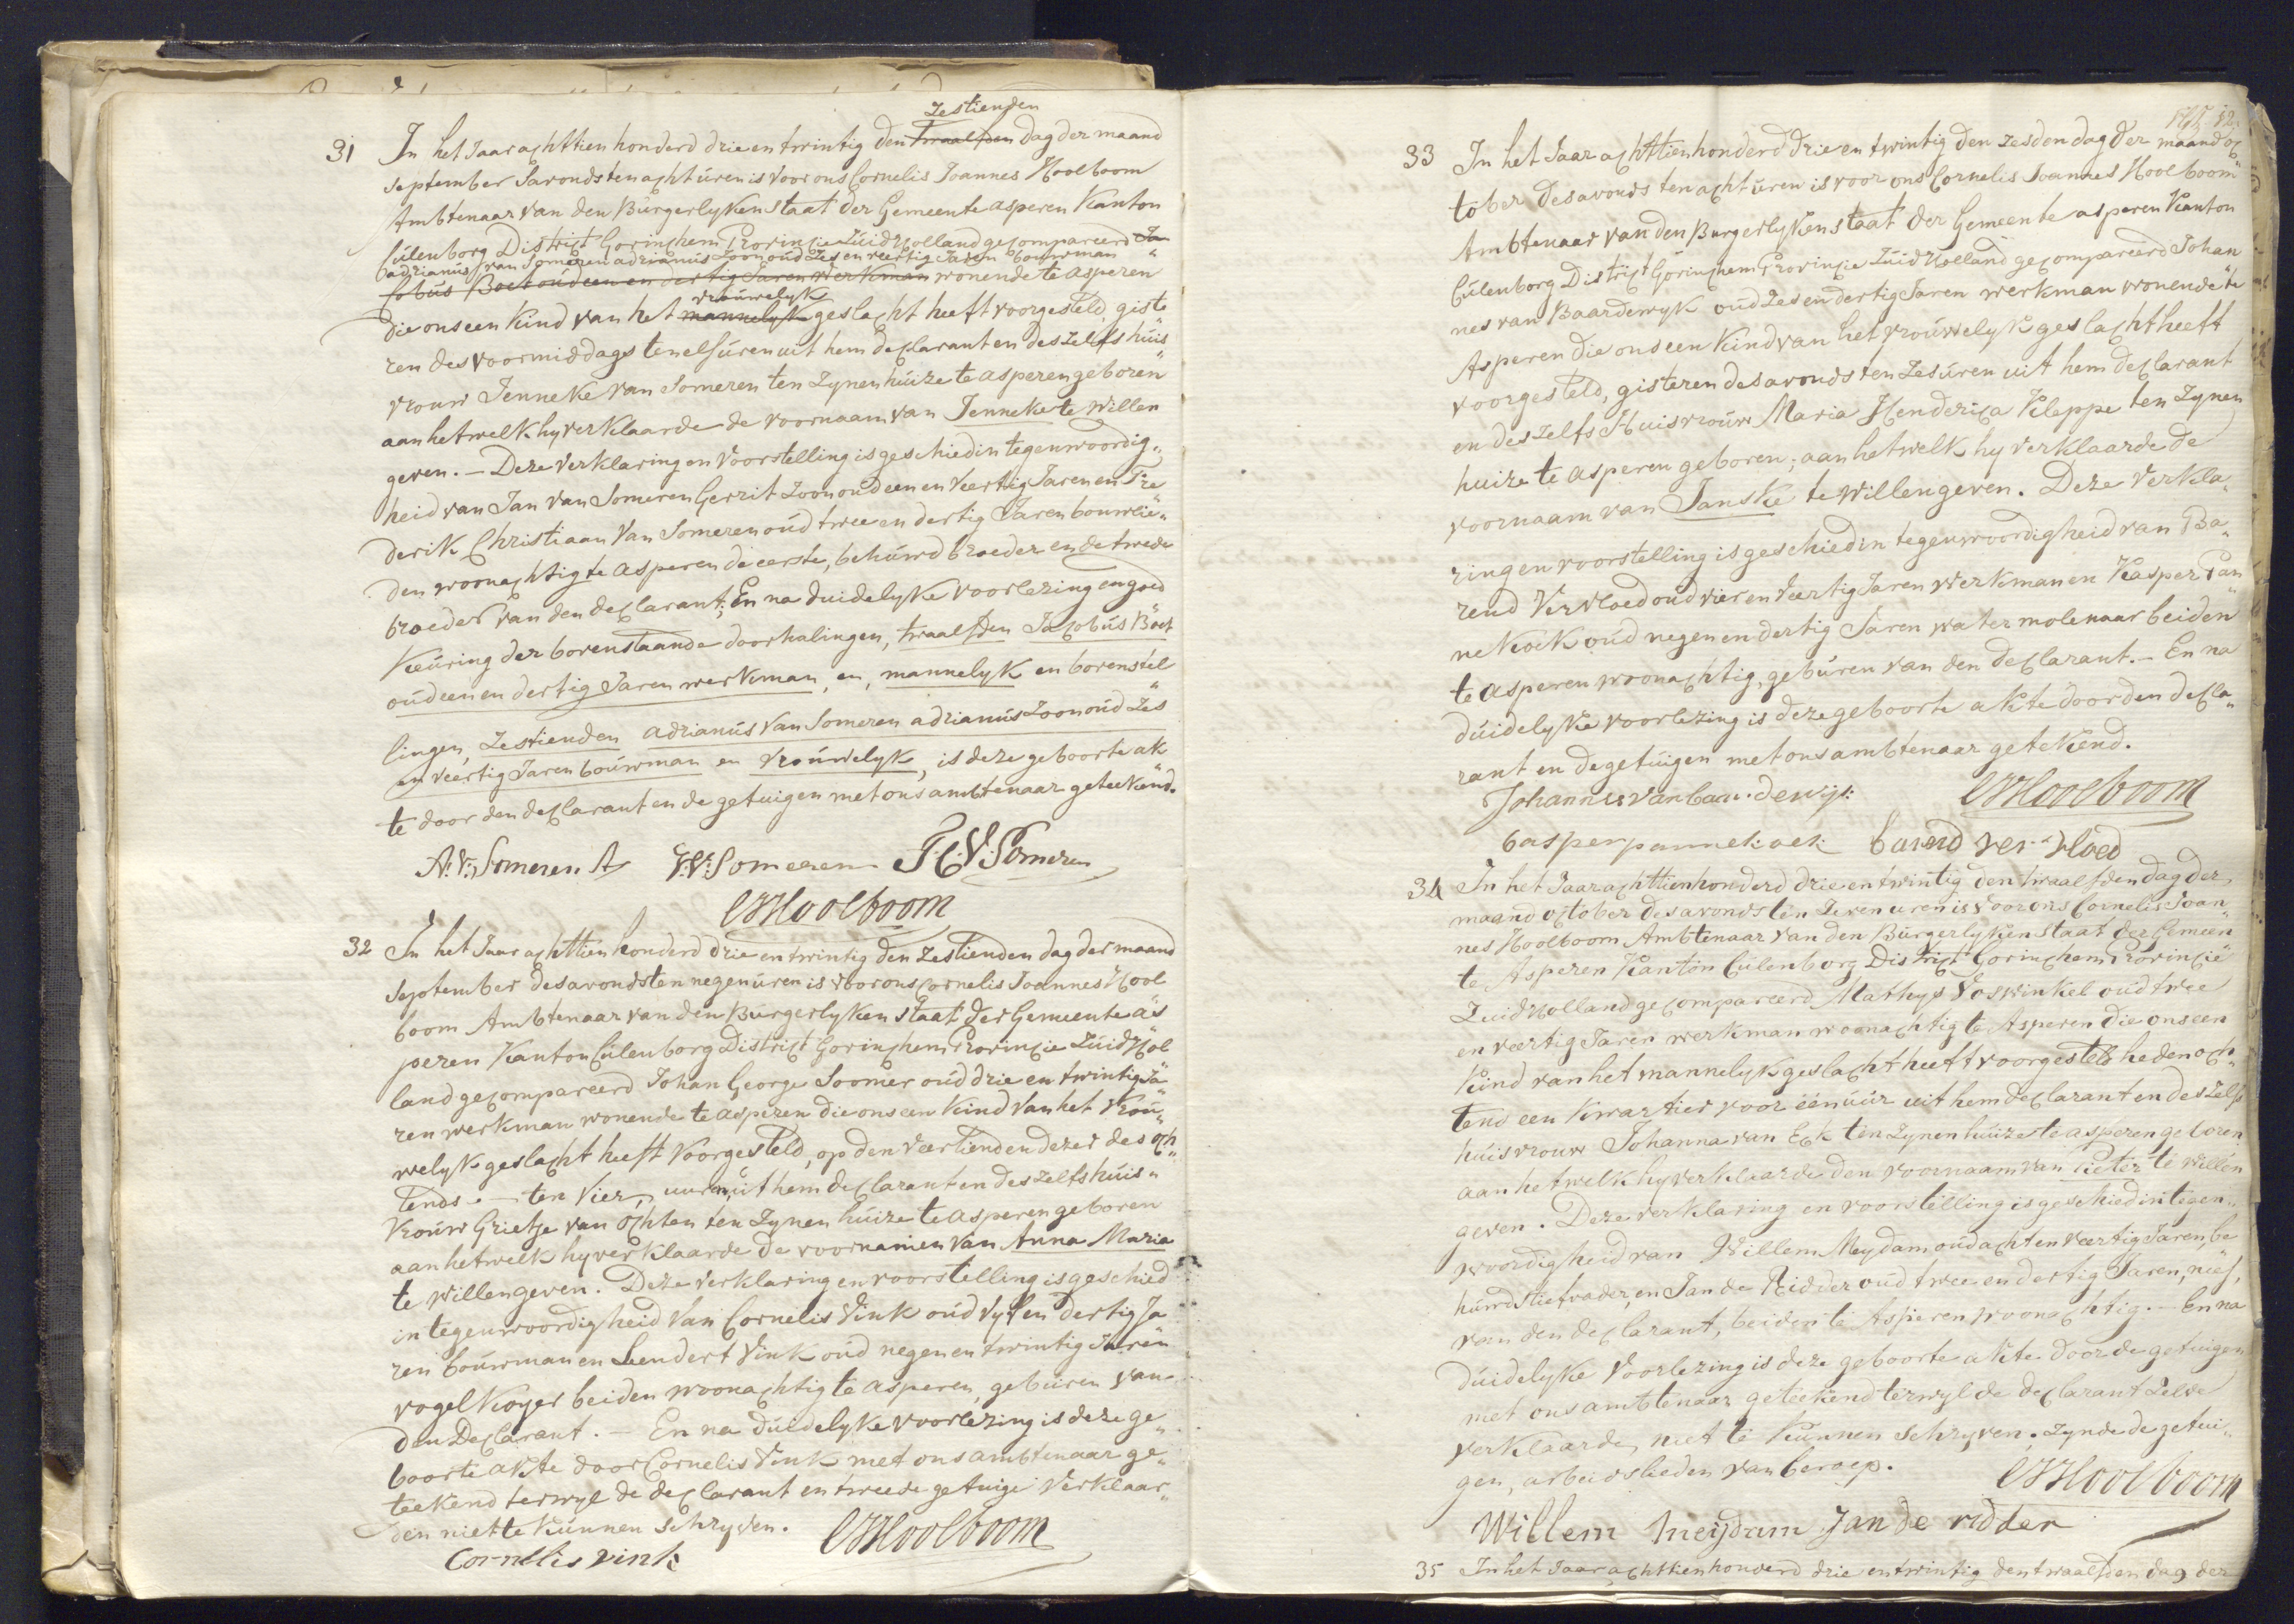 31 In het Jaar achttien honderd drie en twintig den twaalfden zestienden dag der maand
september Savonds ten acht uren is voor ons Cornelis Joannes Hoolboom
Ambtenaar van den Burgerlyken staat der Gemeente asperen Kanton
Culenborg District Gorinchem Provincie Zuid Holland gecompareerd Ja
adrianus van Someren adrianus Zoon oud Zes en veertig Jaren bouwman
cobus Boet oud een en dertig Jaren Werkman wonende te asperen
die ons een Kind van het mannelyk vrouwelyk geslacht heeft voorgesteld, giste
ren des voormiddags ten elf uren uit hem declarant en deszelfs huis„
vrouw Jenneke van Someren ten Zynen huize te asperen geboren
aan hetwelk hy verklaarde de voornaam van Jenneke te willen
geven. — Deze verklaring en Voorstelling is geschied in tegenwoordig„
heid van Jan van Someren Gerrit Zoon oud een en Veertig Jaren en Fre
derik Christiaan Van Someren oud twee en dertig Jaren bouwlie„
den woonachtig te asperen de eerste, behuwd broeder en de twede
broeder van den declarant; En na duidelyke voorlezing en goed
Keuring der bovenstaande doorhalingen, twaalfden Jacobus Boet
oud een en dertig Jaren werkman, en, mannelyk en bovenstel
lingen, Zestienden adrianus Van Someren adrianus Zoon oud Zes
en veertig Jaren bouwman en Vrouwelyk, is deze geboorte ak
te door den declarant en de getuigen met ons ambtenaar geteekend.
A: V: Someren A J: V: Someren F: C: V: Someren
CJHoolboom
32 In het Jaar achttien honderd drie en twintig den Zestienden dag der maand
September des avonds ten negen uren is voor ons Cornelis Joannes Hool
boom Ambtenaar van den Burgerlyken staat der Gemeente as
peren Kanton Culenborg District Gorinchem Provincie Zuid Hol
land gecompareerd Johan George Soomer oud drie en twintig Ja
ren werkman wonende te asperen die ons een Kind van het Vrou„
welyk geslacht heeft Voorgesteld, op den veertienden dezer des och„
tends — ten Vier, uuren, uit hem declarant en deszelfs huis„
Vrouw Grietje van Ochten ten Zynen huize te asperen geboren
aan hetwelk hy verklaarde de voornamen van Anna Maria
te willen geven. Deze verklaring en voorstelling is geschied
in tegenwoordigheid Van Cornelis Vink oud vyf en dertig Ja
ren bouwman en Leendert Vink oud negen en twintig Jaren
vogel Kooyer beiden woonachtig te asperen, geburen van
den Declarant. — En na duidelyke voorlezing is deze ge„
boorte akte door Cornelis Vink met ons ambtenaar ge„
teekend terwyl de declarant en tweede getuige Verklaar„
den niet te Kunnen schryven. CJHoolboom
Cornelis vink
33 In het Jaar achttien honderd drie en twintig den zesden dag der maand oc„
tober des avonds ten acht uren is voor ons Cornelis Joannes Hoolboom
Ambtenaar van den Burgerlyken staat der Gemeente asperen Kanton
Culenborg District Gorinchem Provincie Zuid Holland gecompareerd Johan
nes van Baardewyk oud Zes en dertig Jaren werkman wonende te
Asperen die ons een Kind van het vrouwelyk geslacht heeft
voorgesteld, gisteren des avonds ten Zes uren uit hem declarant
en deszelfs Huisvrouw Maria Henderica Kleppe ten Zynen
huize te asperen geboren; aan hetwelk hy verklaarde de
voornaam van Janske te willen geven. Deze Verkla„
ring en voorstelling is geschied in tegenwoordigheid van Ba„
rend Vervloed oud vier en Veertig Jaren werkman en Kasper Pan„
nekoek oud negen en dertig Jaren water molenaar beiden
te asperen woonachtig, geburen van den declarant. — En na
duidelyke voorlezing is deze geboorte akte door den decla„
rant en de getuigen met ons ambtenaar getekend.
Johannes van baardewijk CJHoolboom
casper pannekoek barend vervloed
34 In het Jaar achttien honderd drie en twintig den twaalfden dag der
maand october des avonds ten Zeven uren is Voor ons Cornelis Joan„
nes Hoolboom Ambtenaar van den Burgerlyken staat der Gemeen„
te Asperen Kanton Culenborg District Gorinchem Provincie
Zuid Holland gecompareerd Mathys Voswinkel oud twee
en veertig Jaren werkman woonachtig te Asperen die ons een
Kind van het mannelyk geslacht heeft voorgesteld heden och„
tend een Kwartier voor één uur uit hem declarant en deszelfs
huisvrouw Johanna van Eck ten Zynen huize te asperen geboren
aan hetwelk hy verklaarde den voornaam van Pieter te willen
geven. Deze verklaring en voorstelling is geschied in tegen„
woordigheid van Willem Meydam oud acht en veertig Jaren, be
huwd stiefvader, en Jan de Ridder oud twee en dertig Jaren, neef,
van den declarant, beiden te Asperen woonachtig. — En na
duidelyke Voorlezing is deze geboorte akte door de getuigen
met ons ambtenaar geteekend terwyl de declarant Zelve
verklaarde, niet te Kunnen schryven. Zynde de getui„
gen, arbeidslieden van beroep. CJHoolboom
Willem meijdam Jan de ridder
35 In het Jaar achttien honderd drie en twintig den twaalfden dag der